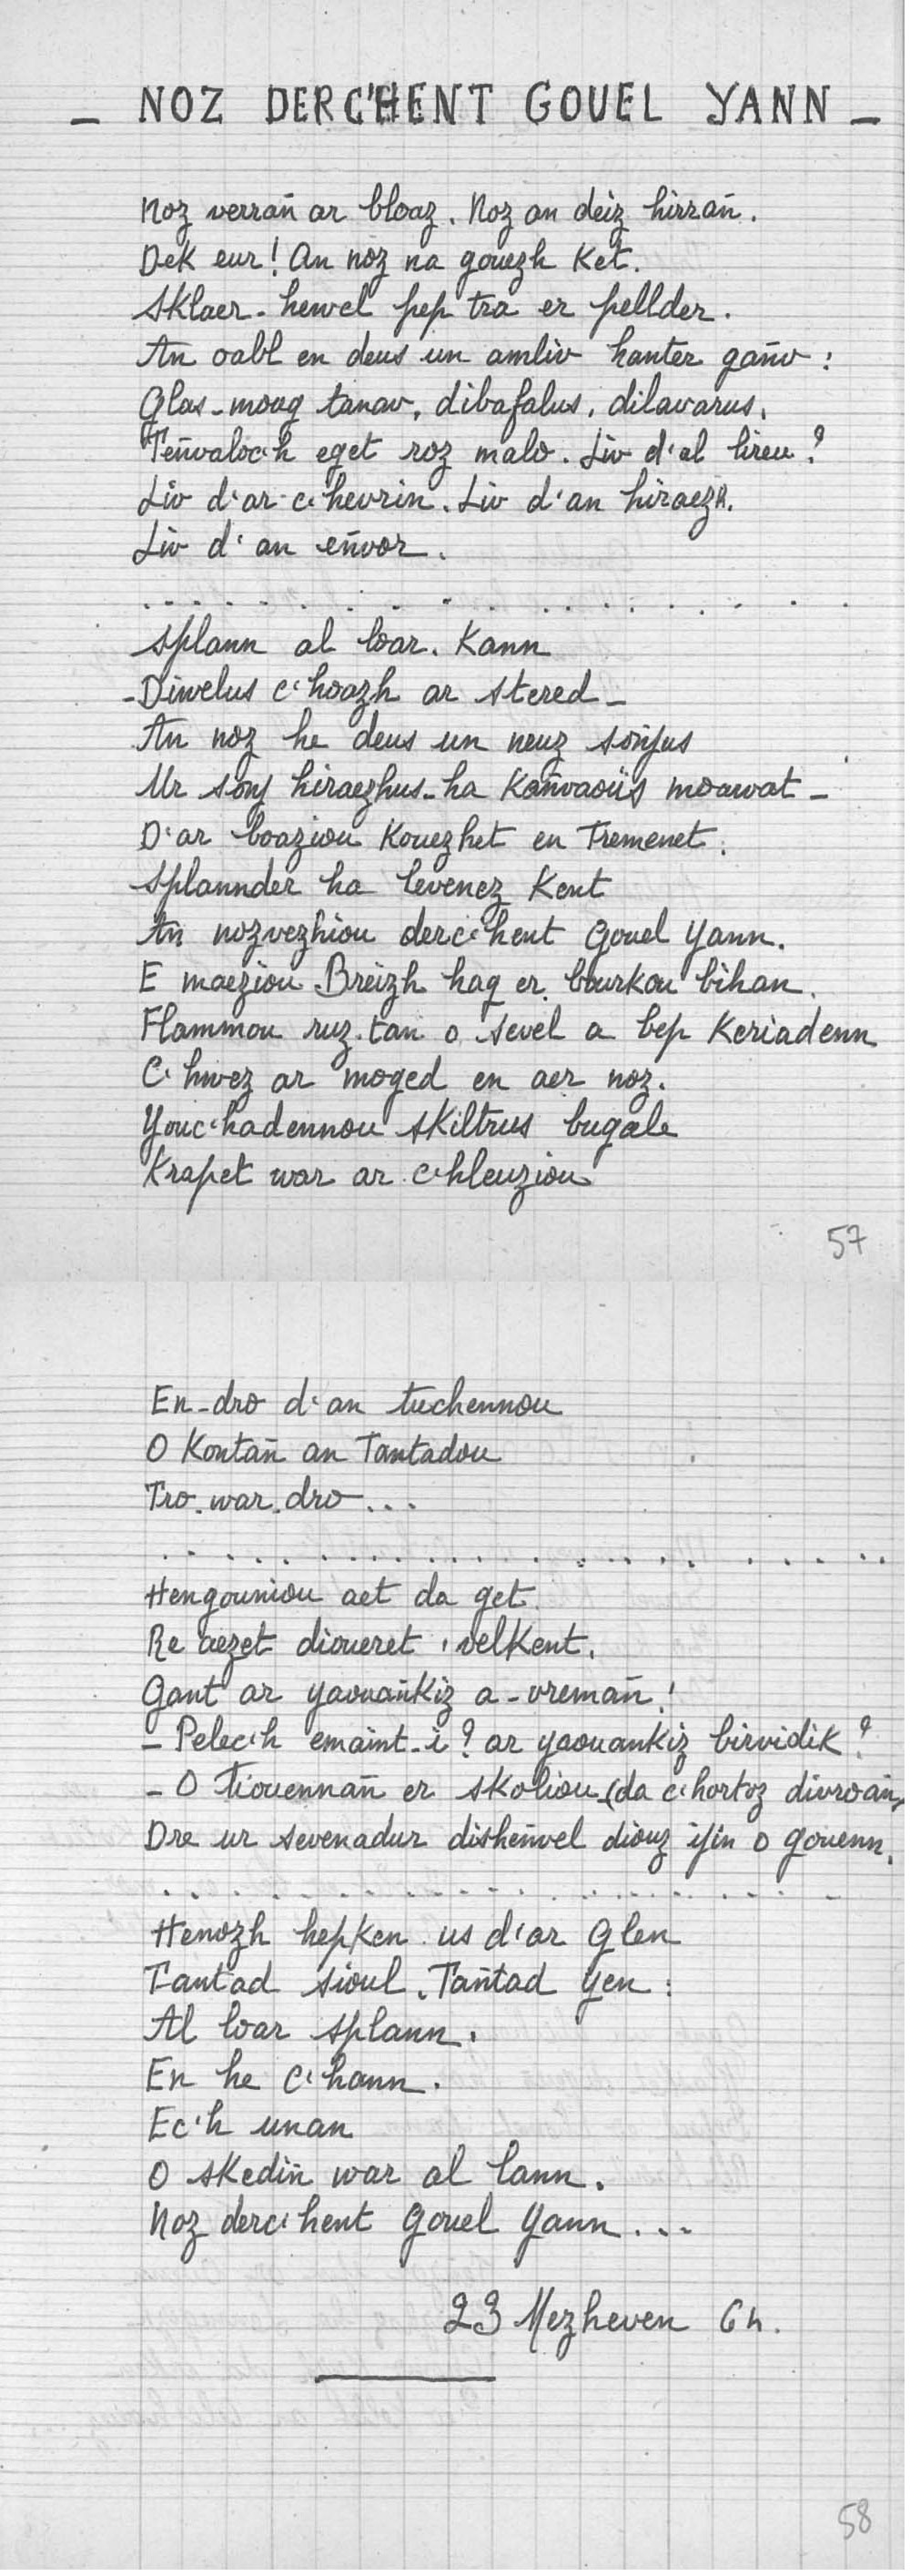 – NOZ DERC'HENT GOUEL YANN –
Noz verrañ ar bloaz. Noz an deiz hirrañ.
Dek eur! An noz na gouezh ket.
Sklaer-hewel pep tra er pellder.
An oabl en deus un amliv hanter gañv:
Glas-moug tanav, dibafalus, dilavarus,
Teñvaloc'h eget roz malo. Liv d'al lireu?
Liv d'ar c'hevrin. Liv d'an hiraezh.
Liv d'an eñvor.
. . . . . . . . . . . . . . . . . .
Splann al loar. Kann
– Diwelus c'hoazh ar stered –
An noz he deus un neuz soñjus
Ur soñj hiraezhus-ha kañvaoüs moarvat –
D'ar boaziou kouezhet en Tremenet.
Splannder ha levenez kent
An nozvezhiou derc'hent Gouel Yann.
E maeziou Breizh hag er bourkou bihan.
Flammou ruz-tan o sevel a bep keriadenn
C'hwez ar moged en aer noz.
Youc'hadennou skiltrus bugale
Krapet war ar c'hleuziou
57
En-dro d'an tuchennou
O kontañ an Tantadou
Tro-war-dro...
. . . . . . . . . . . . . . . . . .
Hengouniou aet da get.
Re aezet dioueret, velkent.
Gant ar yaouankiz a-vremañ!
– Pelec'h emaint-i? ar yaouankiz birvidik?
– O c'houennañ er skoliou (da c'hortoz divroañ,
Dre ur sevenadur disheñvel diouz hin o gouenn.
. . . . . . . . . . . . . . . . . .
Henozh hepken us d'ar Glen
Tantad sioul. Tañtad yen:
Al loar splann.
En he c'hann.
Ec'h unan
O skediñ war al lann.
Noz derc'hent Gouel Yann...
23 Mezheven 64.
58